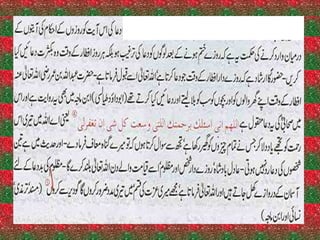 دعا کی اس آیت کو روزوں کے احکام کی آیتوں کے
درمیان وارد کرنے کی حکمت یہ ہے کہ روزے ختم ہونے کے بعد لوگوں کو دعا کی ترغیب ہو بلکہ ہر روز افطار کے وقت وہ بکثرت دعائیں کیا
کریں۔ حضور کا ارشاد ہے کہ روزے دار افطار کے وقت جو دعا کرتا ہے اللہ تعالیٰ اسے قبول فرماتا ہے۔ حضرت عبداللہ بن عمر رضی اللہ تعالیٰ عنہ
افطار کے وقت اپنے گھر والوں کو اور بچوں کو سب کو بلا لیتے اور دعائیں کیا کرتے تھے (ابوداؤد طیالسی) ابن ماجہ میں بھی یہ روایت ہے اور اس
میں صحابی کی یہ دعا منقول ہے اللھم انی اسئلک برحمتک التی وسعت کل شی ان تغفرلی یعنی اے اللہ میں تیری اس
رحمت کو تجھے یاد دلا کر جس نے تمام چیزوں کو گھیر رکھا ہے تجھ سے سوال کرتا ہوں کہ تو میرے گناہ معاف فرما دے۔ اور حدیث میں ہے تین
شخصوں کی دعا رد نہیں ہوتی۔ عادل بادشاہ، روزے دار شخص اور مظلوم اسے قیامت والے دن اللہ تعالیٰ بلند کرے گا۔ مظلوم کی بددعا کے لئے
آسمان کے دروازے کھل جاتے ہیں اور اللہ تعالیٰ فرماتا ہے مجھے میری عزت کی قسم میں تیری مدد ضرور کروں گا گو دیر سے کروں (مسند، ترمذی،
نسائی اور ابن ماجہ)